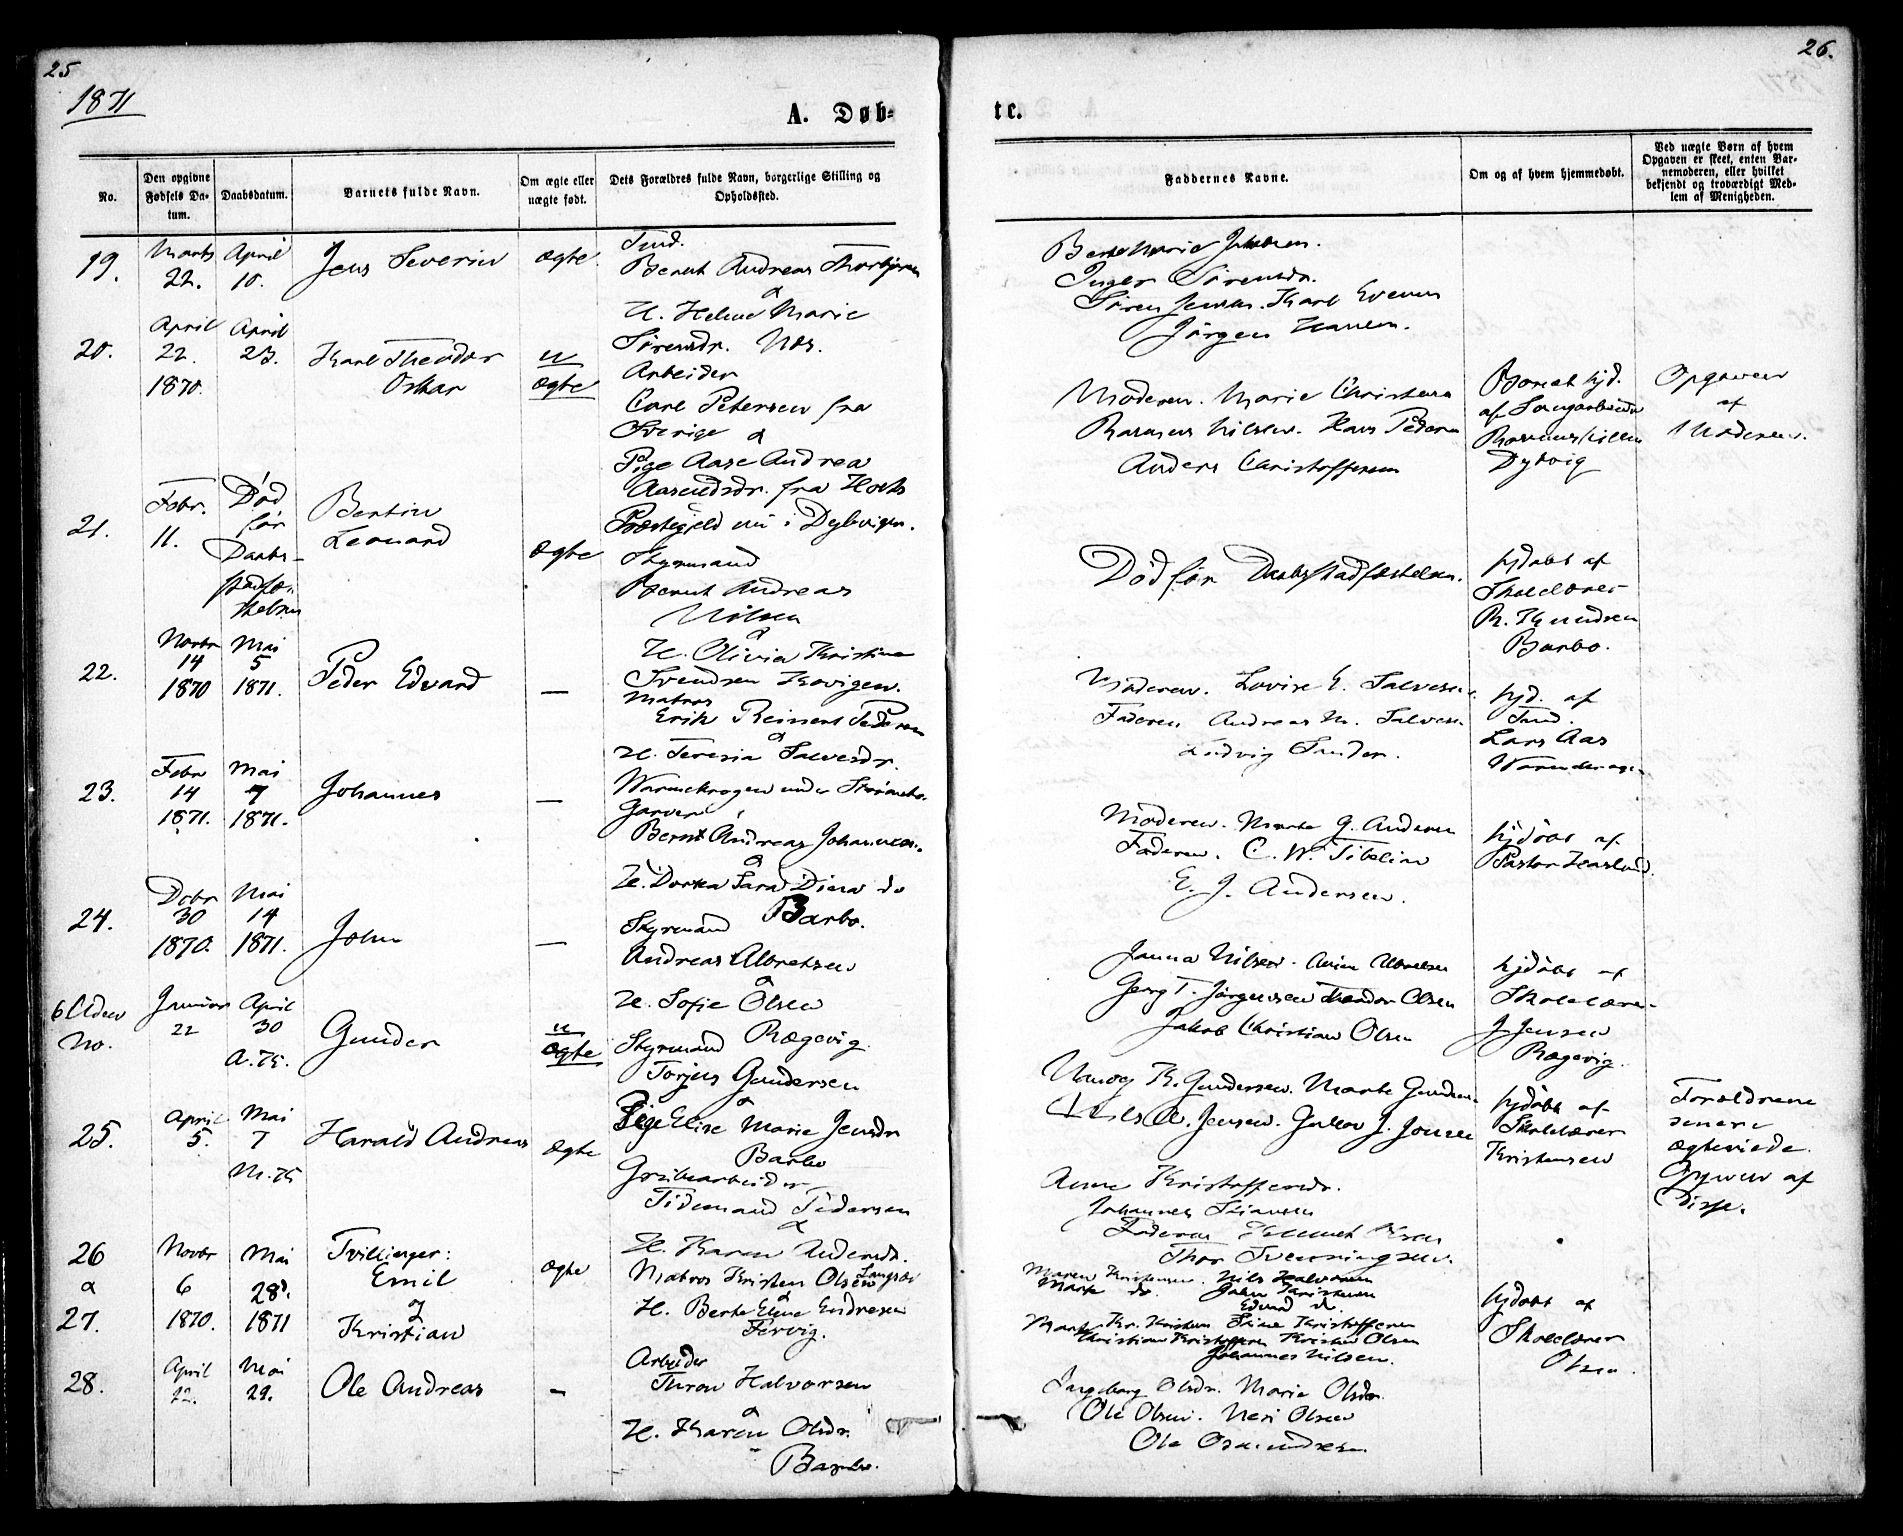 25
1871
A. Døb-
No.
Den opgivne Fødsels Da-tum.
Daabsdatum.
Barnets fulde Navn.
Om ægte eller nægte født.
Dets Forældres fulde Navn, borgerlige Stilling og Opholdssted.
19.
Marts 22.
April 10.
Jens Severin
ægte.
Tmd.
Bernt Andreas Thorbjørnsen
&
H. Helene Marie
Sørensdr. Næs.
20.
April 22. 1870.
April 23.
Karl Theodor
Oskar
u
ægte
Arbeider
Carl Petersen fra
Sverige &
Pige Aase Andrea
Aasendsdr. fra Holts
Præstegjeld nu i Dybvigen.
21.
Febr. 11.
Død
før
Daabs-
stadfæ-
stelsen
Bertin
Leonard
ægte
Styrmand
Bernt Andreas
Nilsen
&
H. Olivia Kristine
Svendsen Kovigen.
22.
Novbr 14 1870
Mai 5 1871.
Peder Edvard
—
Matros
Erik Reinert Pedersen
&
H. Teresia Salvesdr.
23.
Febr 14 1871.
Mai 7 1871.
Johannes
—
Garver
Bernt Andreas Johannesen.
&
H. Dorthea Sara Dina do
Barbo.
24.
Dcbr 30 1870.
Mai 14 1871.
John
—
Styrmand
Andreas Albretsen
&
H. Sofie Olsen
Rægevig.
6 Uden
No.
Januar 22
April 30
A.K.
Gunder
u
ægte
Styrmand
Torjus Gundersen
&
Pige Elise Marie Jensdr
Barbo
25.
April 5.
Mai 7
M.K
Harald Andreas
ægte
Grubearbeider
Tidemand Pedersen
&
H. Karen Andersdr.
26
&
27.
Novbr 6 1870.
Mai 28. 1871
Tvillinger:
Emil
og
Kristian
ægte
Matros Kristen Olsen Langsæ
&
H. Berte Eline Endresen
Tervig.
28.
April 22.
Mai 29.
Ole Andreas
—
Arbeider
Thron Halvorsen
&
H. Karen Olsdr.
Barbo.
26.
te.
Faddernes Navne.
Om og af hvem hjemmedøbt.
Ved nægte Børn af hvem
Opgaven er skeet, enten Bar-
nemoderen, eller hvilket
bekjendt og troværdigt Med-
lem af Menigheden.
Inger Sørensdr.
Søren Jensen. Karl Evensen
Jørgen Hansen.
Moderen. Marie Christensen
Rasmus Nilsen. Hans Pedersen
Anders Christoffersen
hjd.
af
Rasmus Nilsen
Dybvig
Opgaven
af
Moderen.
Død før Daabsstadfæstelsen.
hjdøbt af
Skolelærer
R. Knudsen
Barbo.
Moderen. Lovise E. Salvesen.
Faderen Andreas M. Salvesen
Ludvig Sander.
hjd. af
Tmd.
Lars Aas
Moderen. Marte G. Andersen
Faderen. C. W. Tibelin
E. J. Andersen.
hjdøbt af
Pastor Haslund.
Janna Nilsen. Anne Albretsen
Georg T. Jørgensen Theodor Olsen
Jakob Christian Olsen
hjdøbt af
Skolelærer
J. Jensen
Rægevig.
K. Gundersen. Marte Gundersen
Nils A. Jensen.
hjdøbt af
Skolelærer
Kristensen
Forældrene
senere
ægteviede.
Opgaven af
Disse.
Anne Kristoffersdr.
Johannes
Faderen
Thor Svenningsen.
Maren Kristensen. Nils Halvorsen
Marte do. John Kristensen
Edvard do.
Marte Kr. Kristensen Stine Kristoffersen
Christian Kristoffersen Kristen Olsen
Johannes Nilsen.
hjdøbt af
Skolelærer
Olsen.
Ingeborg Olsdr. Marie Olsdr.
Ole Olsen. Neri Olsen
Ole Osmundsen